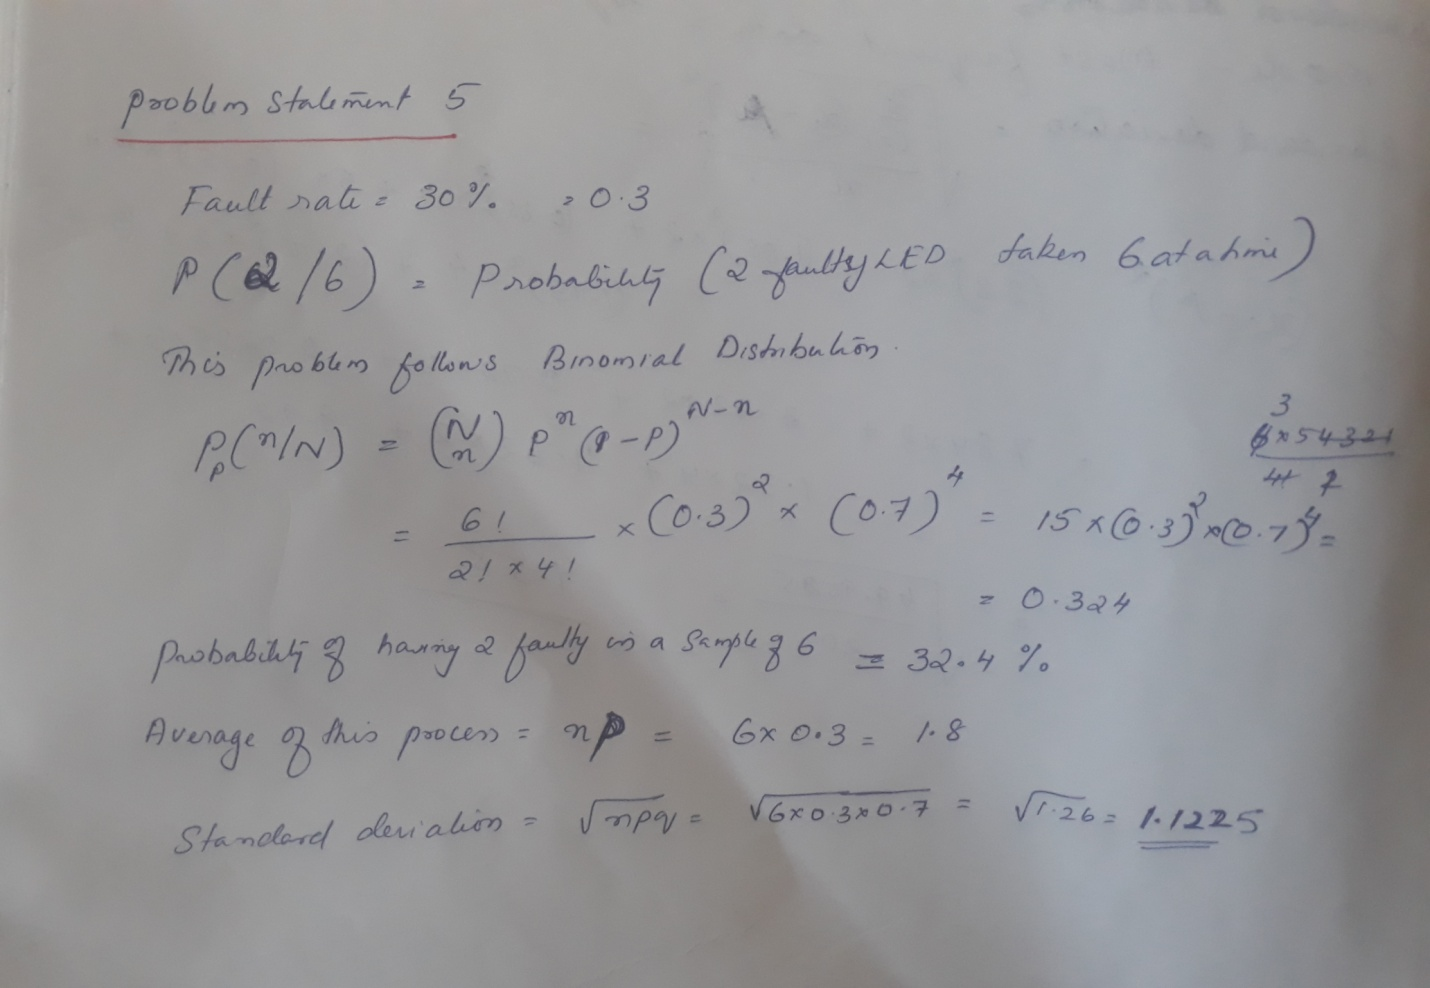 Problem Statement 5
Fault rate = 30% = 0.3
P(2/6) = Probability (2 faulty LED taken 6 at a time)
This problem follows Binomial Distribution.
P_p(n/N) = (N n) p^n (1-P)^N-n
3
6x54321
41 2
= 6! / 2! x 4! x (0.3)^2 x (0.7)^4 = 15 x (0.3)^2 x (0.7)^4 =
= 0.324
Probability of having 2 faulty in a sample of 6 = 32.4 %
Average of this process = np = 6x 0.3 = 1.8
Standard deviation = √npq = √6x0.3x0.7 = √1.26 = 1.1225